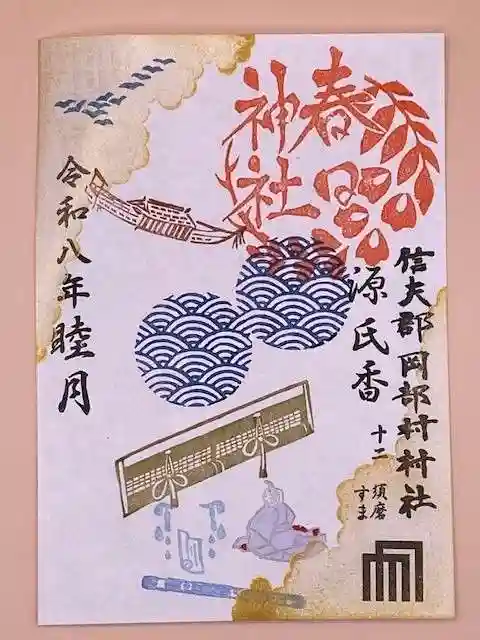 春日
神社
信夫郡岡部村村社
源氏香
十二
須磨
すま
令和八年睦月